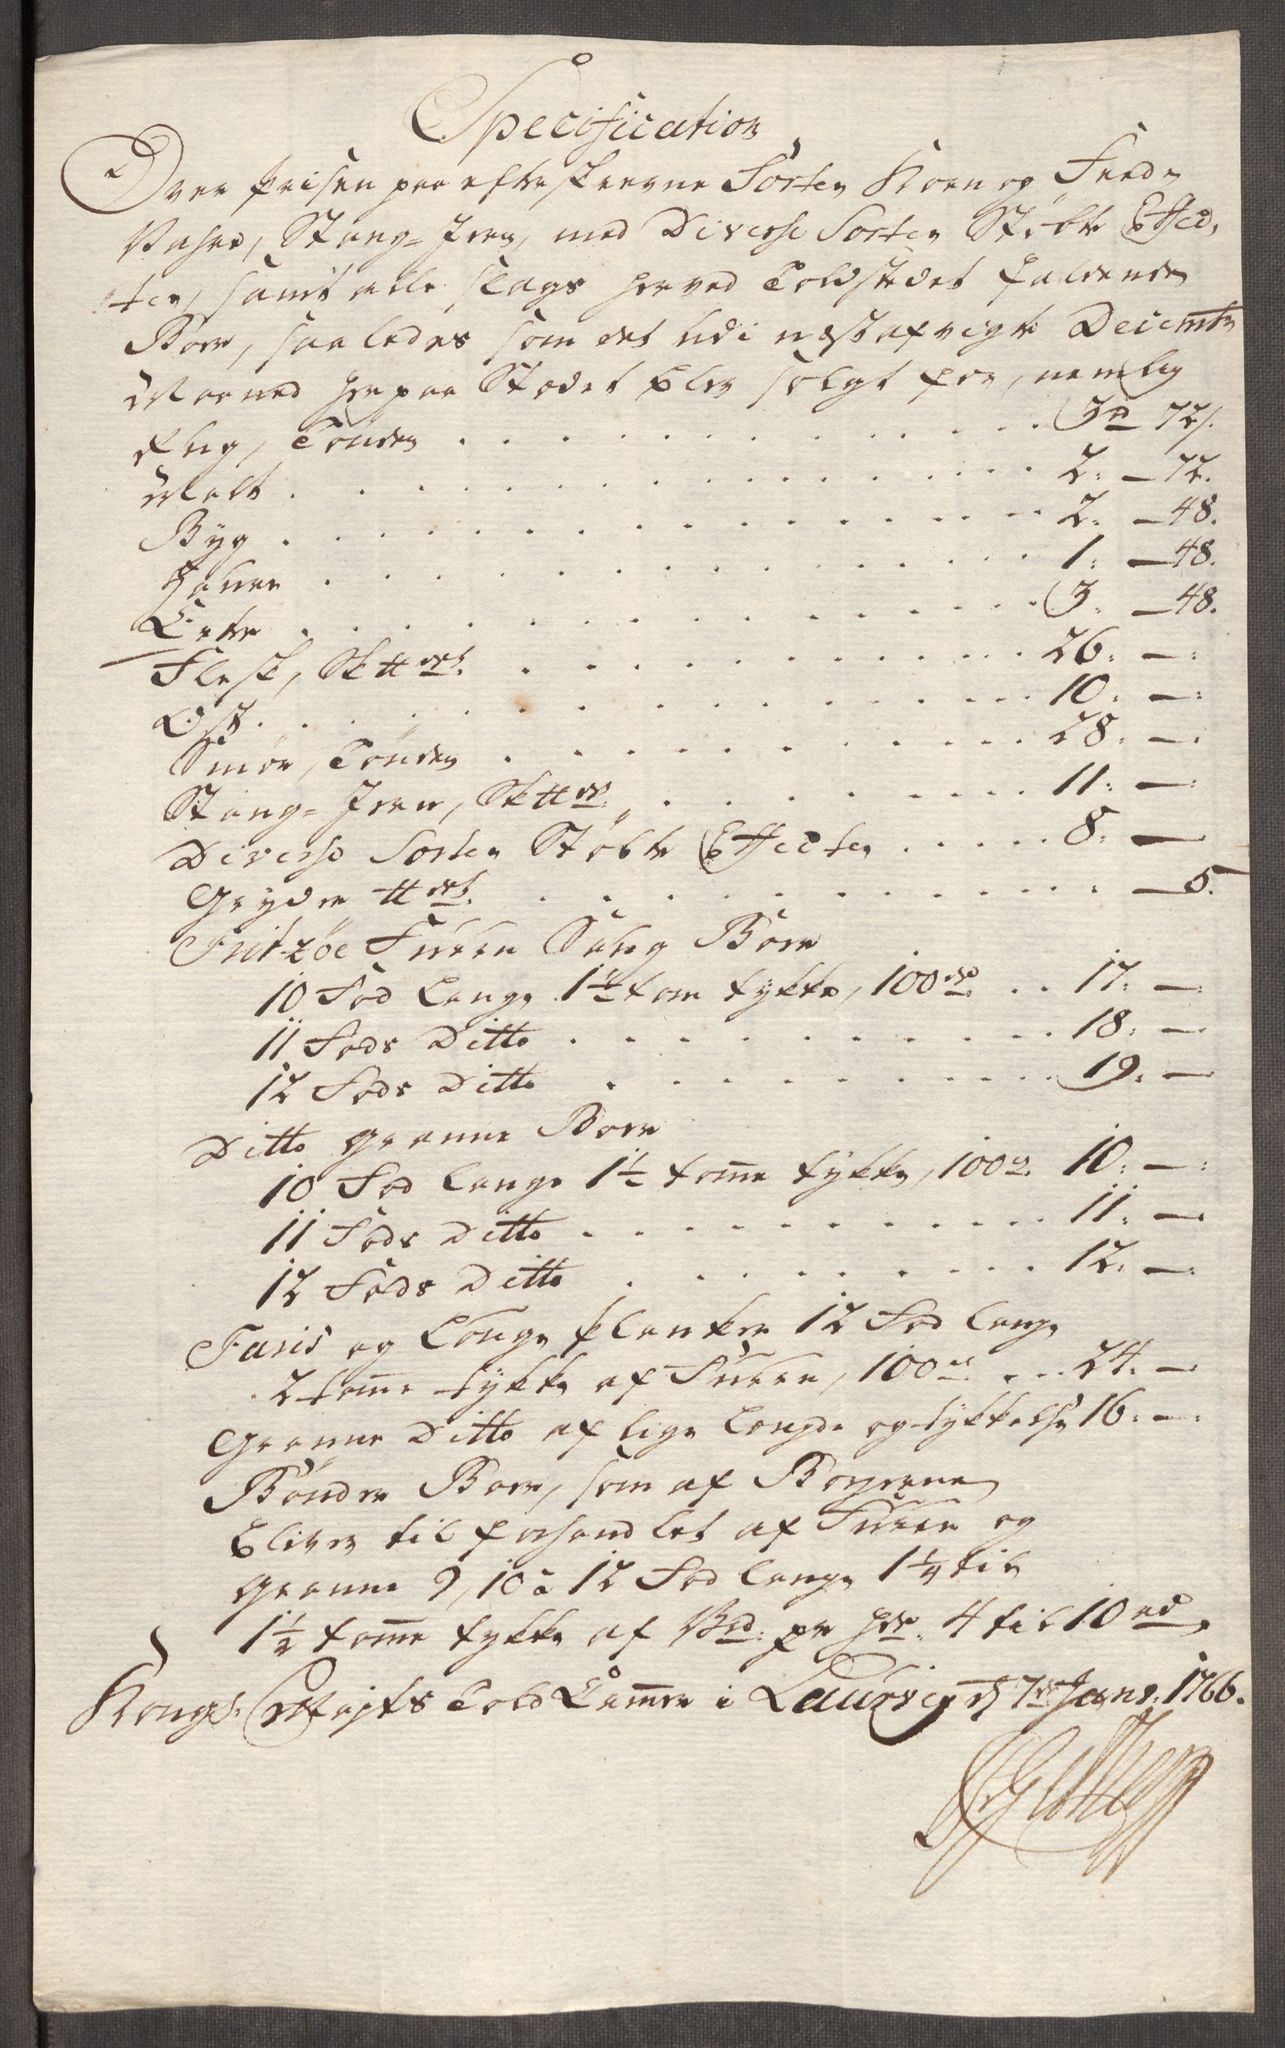 Specification
Over Prisen paa efterskrevne Sorter Korn og Fede
Vahre, Stang-Jern, med Diverse Sorter Støbte Effec-
ter, samt alle slags her ved Toldstedet faldende
Bord, saaledes som det udi næst afvigte Decembr
Maaned her paa Stædet blev solgt for, nemlig
Rug, Tønden . . . 3 rd 72 s.
Malt . . . 2. — 72.
Byg . . . 2. — 48.
Hafre . . . 1. — 48.
Erter . . . 3. — 48.
Flesk, Sk℔det . . . 26. — :
Ost . . . 10. — :
Smør, Tønden . . . 28. — .
Stang-Jern, Sk℔det . . . 11. — :
Diverse Sorter Støbte Effecter . . . 8. —
Gryder ℔det . . . — 5.
Fritzöe Furru Saug Bord
10 Fod lange 1 1/2 tom tykke, 100de . . 17. — :
11 Fods Ditto . . . 18. —
12 Fods Ditto . . . 19. —
Ditto Granne Bord
10 Fod lange 1 1/2 tomme tykke, 100de. 10. — :
11 Fods Ditto . . . 11. —
12 Fods Ditto . . . 12. — :
Faris og Lónge Planker 12 Fod lange
2 tomme tykke af Furru, 100de . . . 24. —
Granne Ditto af lige længde og tykkelse 16. — .
Bønder Bord, som af Borgerne
bliver til forhandlet af Furru og
Granne 9, 10 à 12 Fod lange 1 1/4 til
1 1/2 tomme tykke af Bd: pr hde. 4 til 10 rd.
Kongl. Mayts Told Cammer i Laurvig d 7de Janr. 1766.